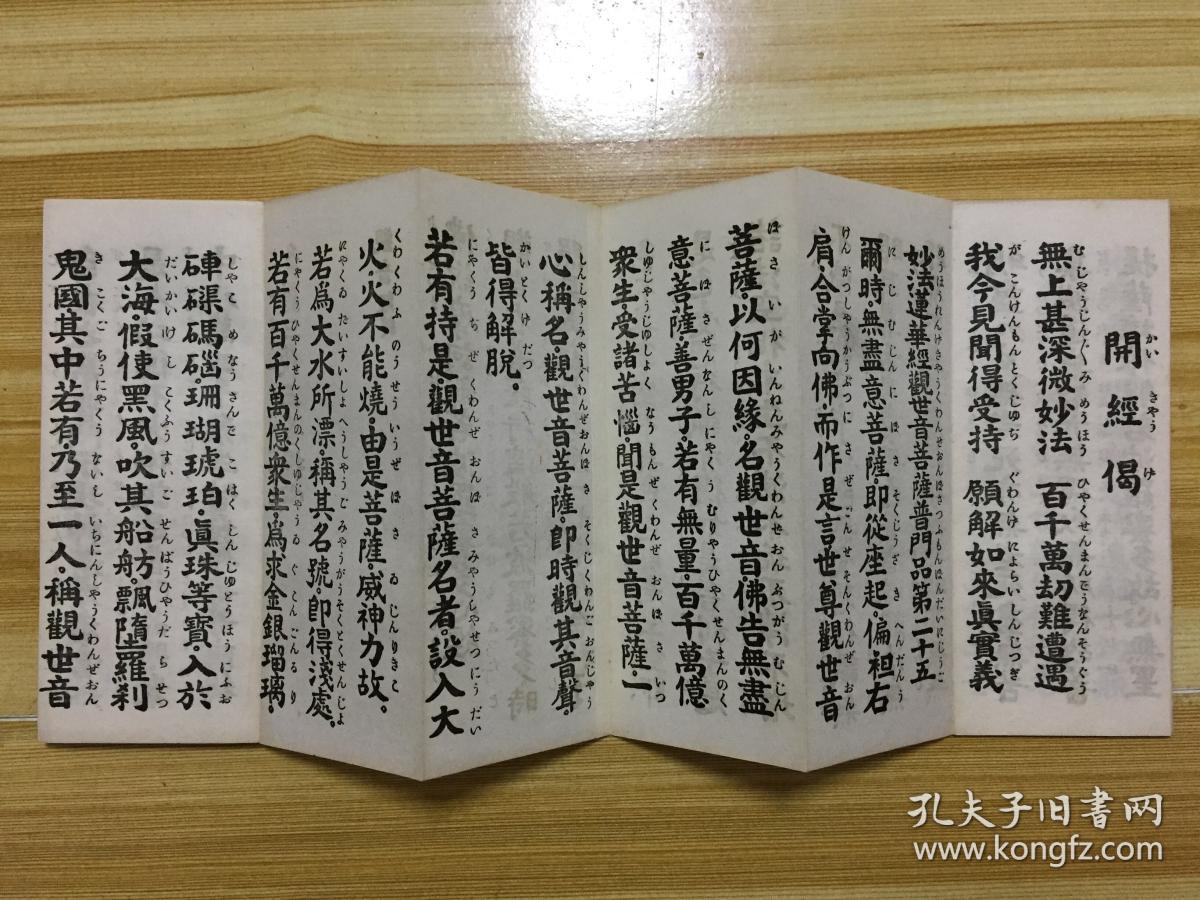 開經偈
無上甚深微妙法 百千萬劫難遭遇
我今見聞得受持 願解如來眞實義
妙法蓮華經觀世音菩薩普門品第二十五
爾時無盡意菩薩・即從座起・偏袒右
肩・合掌向佛而作是言世尊觀世音
菩薩・以何因緣・名觀世音佛告無盡
意菩薩・善男子・若有無量・百千萬億
衆生受諸苦惱・聞是觀世音菩薩・一
心稱名・觀世音菩薩・即時觀其音聲・
皆得解脫。
若有持是・觀世音菩薩名者・設入大
火・火不能燒・由是菩薩・威神力故。
若爲大水所漂・稱其名號・即得淺處。
若有百千萬億衆生・爲求金銀瑠璃・
硨磲碼碯・珊瑚琥珀・眞珠等寶・入於
大海・假使黑風・吹其船舫・飄墮羅刹
鬼國其中若有・乃至一人・稱觀世音
孔夫子旧书网
www.kongfz.com